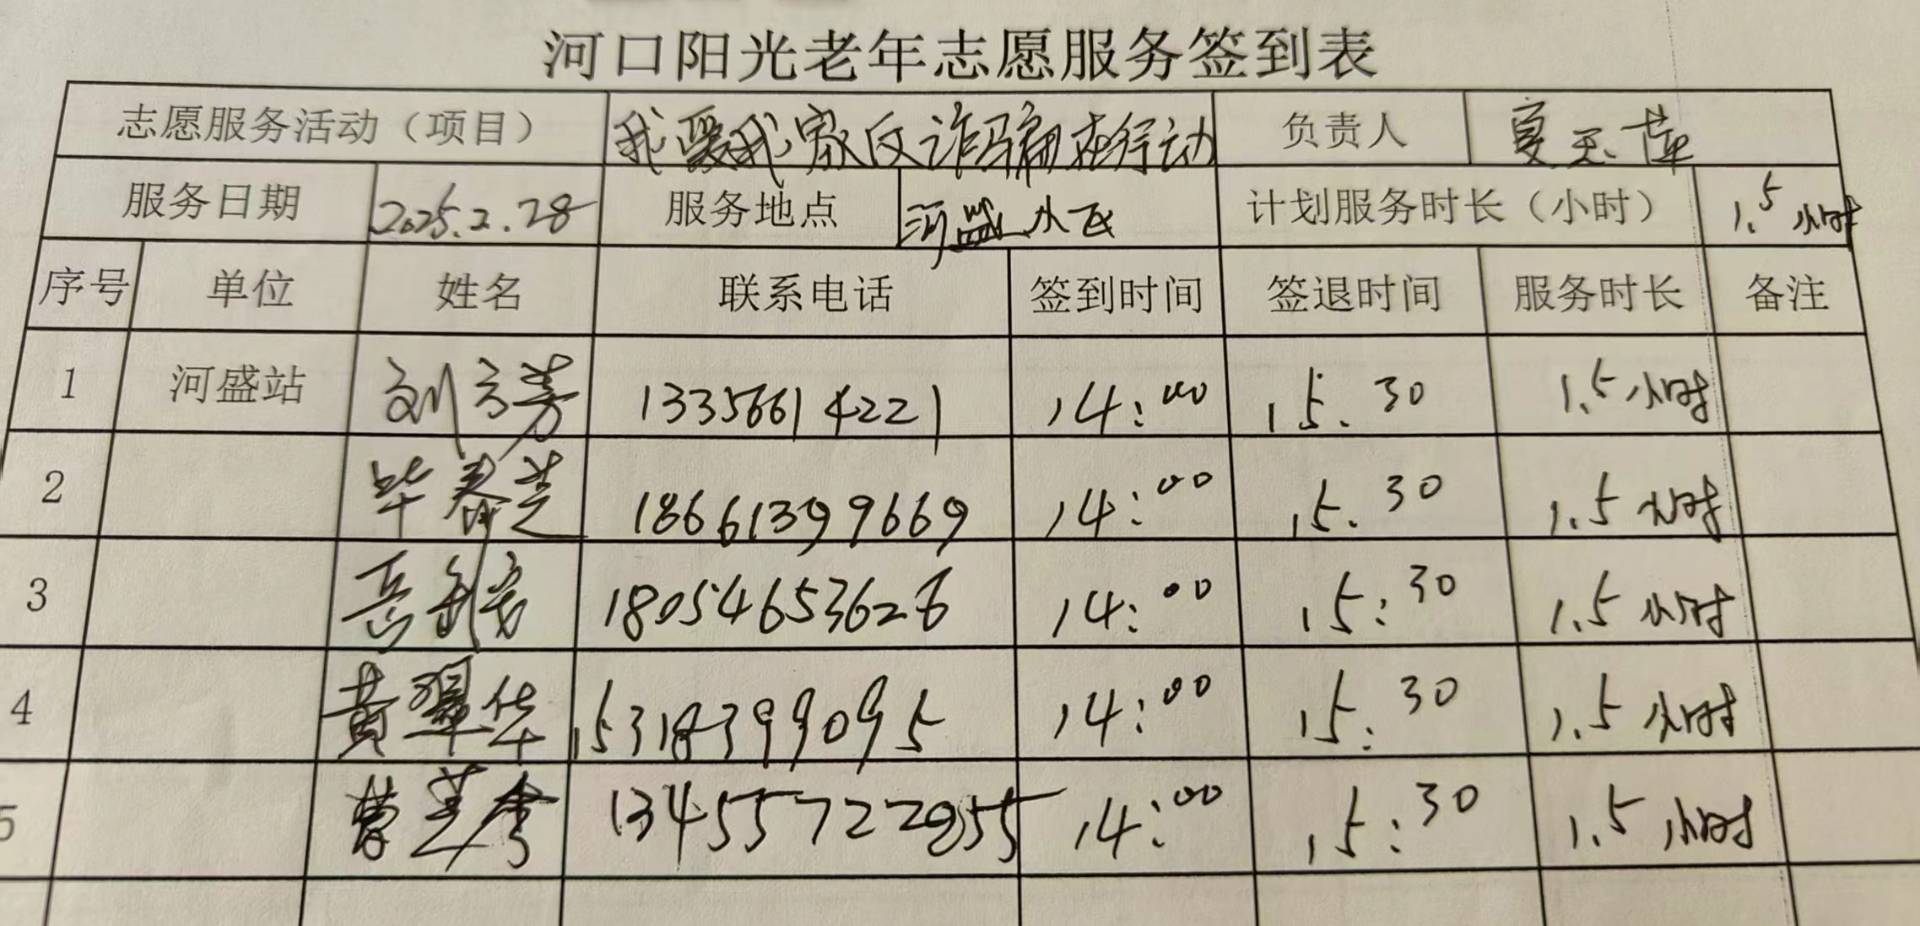 河口阳光老年志愿服务签到表
志愿服务活动（项目） 我要我家反诈骗在行动 负责人 夏玉萍
服务日期 2025.2.28 服务地点 河盛小区 计划服务时长（小时） 1.5小时
序号 单位 姓名 联系电话 签到时间 签退时间 服务时长 备注
1 河盛站 刘方芳 13356614221 14:00 15.30 1.5小时
2 毕春芝 18661399669 14:00 15.30 1.5小时
3 18054653626 14:00 15:30 1.5小时
4 黄翠华 15318399095 14:00 15:30 1.5小时
5 曹兰 14:00 15:30 1.5小时